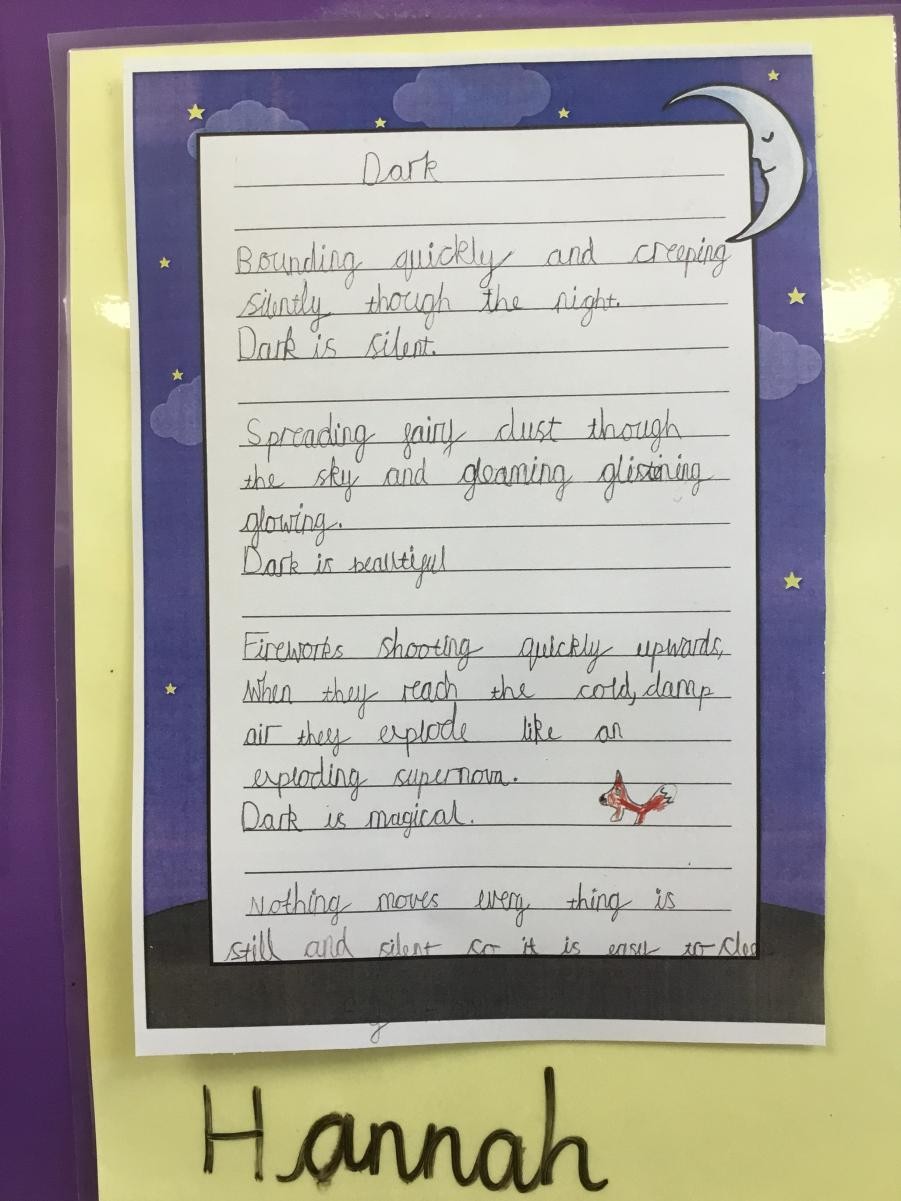 Dark
Bounding quickly and creeping
silently though the night.
Dark is silent.
Spreading fairy dust though
the sky and gleaming glistening
glowing.
Dark is beautiful
Fireworks shooting quickly upwards,
When they reach the cold, damp
air they explode like an
exploding supernova.
Dark is magical.
Nothing moves every thing is
still and silent so it is easy to
Hannah